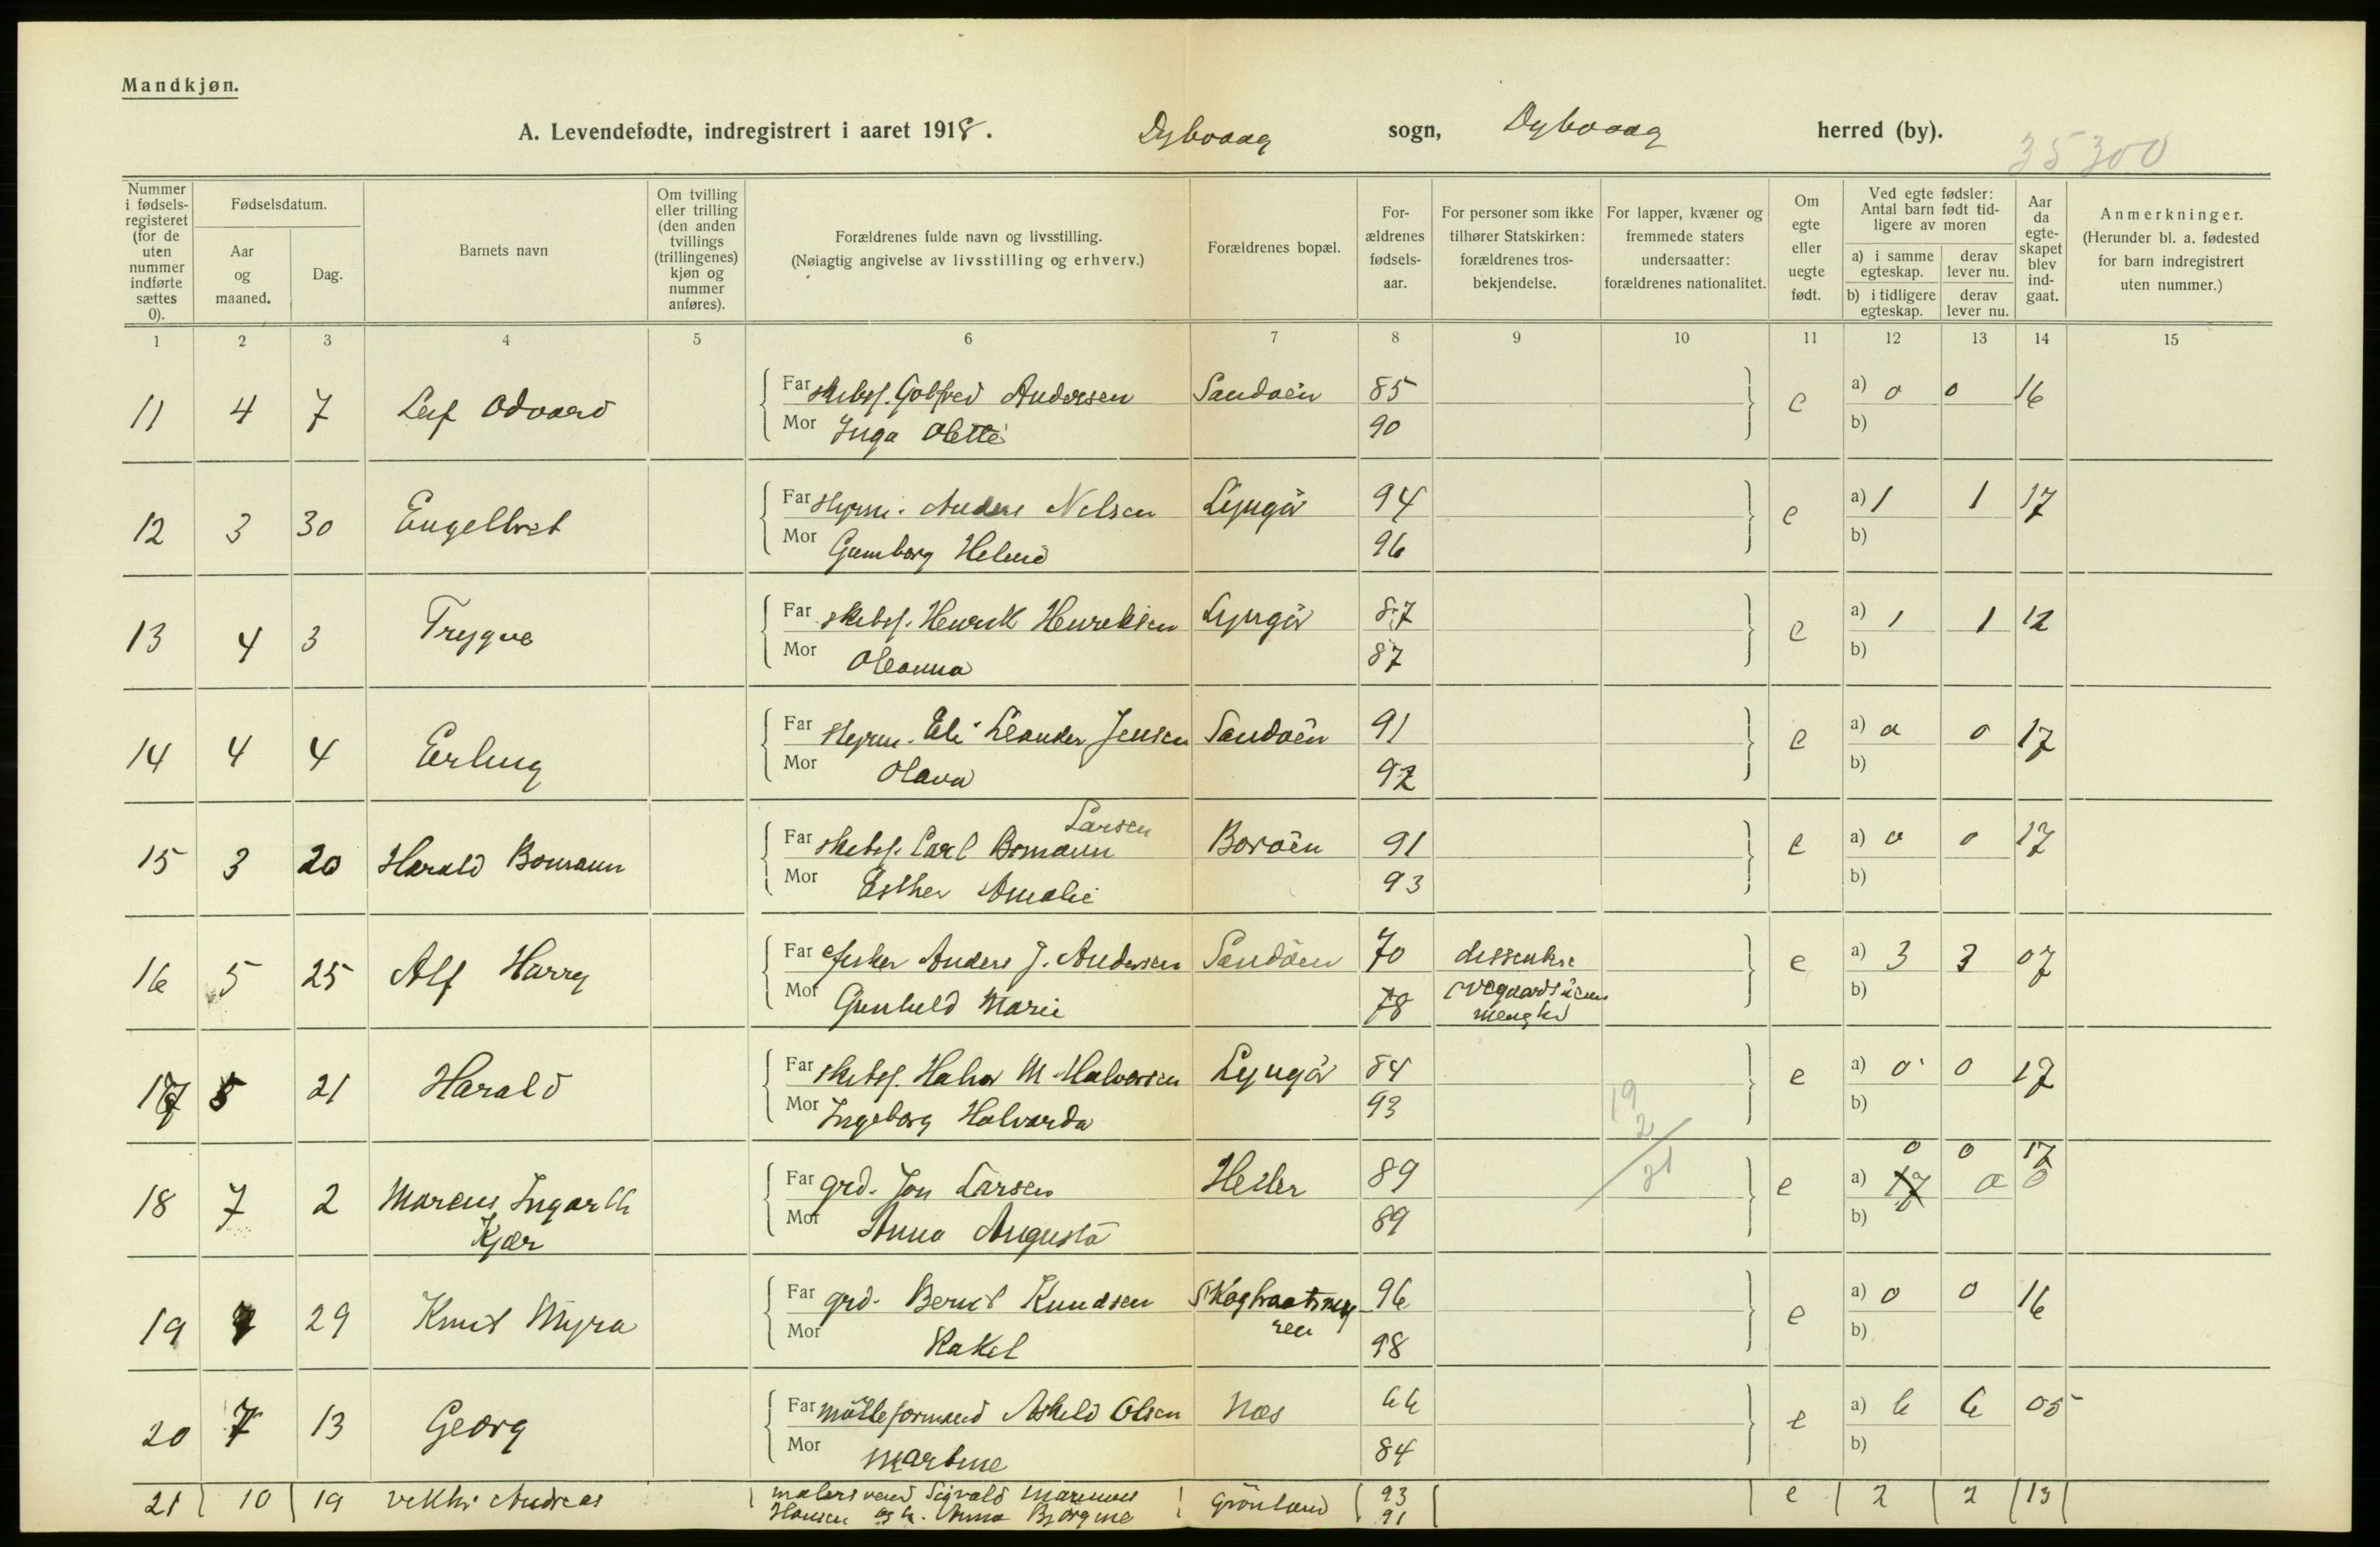 Mandkjøn.
A. Levendefødte, indregistrert i aaret 1918. Dybvaag sogn, Dybvaag herred (by).
35300
Nummer i fødsels-registeret (for de uten nummer indførte sættes 0).
Fødselsdatum.
Aar og maaned.
Dag.
Barnets navn
Om tvilling eller trilling (den anden tvillings (trillingenes) kjøn og nummer anføres).
Forældrenes fulde navn og livsstilling.
(Nøiagtig angivelse av livsstilling og erhverv.)
Forældrenes bopæl.
For-ældrenes fødsels-aar.
For personer som ikke tilhører Statskirken: forældrenes tros-bekjendelse.
For lapper, kvæner og fremmede staters undersaatter: forældrenes nationalitet.
Om egte eller uegte født.
Ved egte fødsler: Antal barn født tid-ligere av moren
a) i samme egteskap. derav lever nu.
b) i tidligere egteskap. derav lever nu.
Aar da egte-skapet blev ind-gaat.
Anmerkninger.
(Herunder bl. a. fødested for barn indregistrert uten nummer.)
1 2 3 4 5 6 7 8 9 10 11 12 13 14 15
11 4 7 Leif Odvard Far skibsf. Gotfred Andersen Sandøen 85 e a) 0 0 16
Mor Inga Olette 90 b)
12 3 30 Engelbret Far styrm. Anders Nilsen Lyngør 94 e a) 1 1 17
Mor Gunborg Helene 96 b)
13 4 3 Trygve Far skibsf. Henrik Henriksen Lyngør 87 e a) 1 1 12
Mor Oleanna 87 b)
14 4 4 Erling Far styrm. Eli Leander Jensen Sandøen 91 e a) 0 0 17
Mor Olava 92 b)
Larsen
15 3 20 Harald Bomann Far skibsf. Carl Bomann Borøen 91 e a) 0 0 17
Mor Esther Amalie 93 b)
16 5 25 Alf Harry Far fisker Anders J. Andersen Sandøen 70 dissentere e a) 3 3 07
Mor Gunhild Marie 78 menghed b)
17 5 21 Harald Far skibsf. Halvor M. Halvorsen Lyngør 84 e a) 0 0 17
Mor Ingeborg Halvarda 93 b)
19
2
21
0 0 17
18 7 2 Marcus Ingarth Far grd. Jon Larsen Hesler 89 e a) 17 0 0
Kjær Mor Anna Augusta 89 b)
19 7 29 Knut Myra Far grd. Berut Knudsen 96 e a) 0 0 16
Mor Rakel 98 b)
20 7 13 Georg Far mølleformand Askild Olsen Næs 66 e a) 6 6 05
Mor Martine 84 b)
21 10 19 Viktor Andreas malersvend Sigvald Marinus Grønland 93 e 2 2 13
Hansen og h. Anna Bjørgine 91